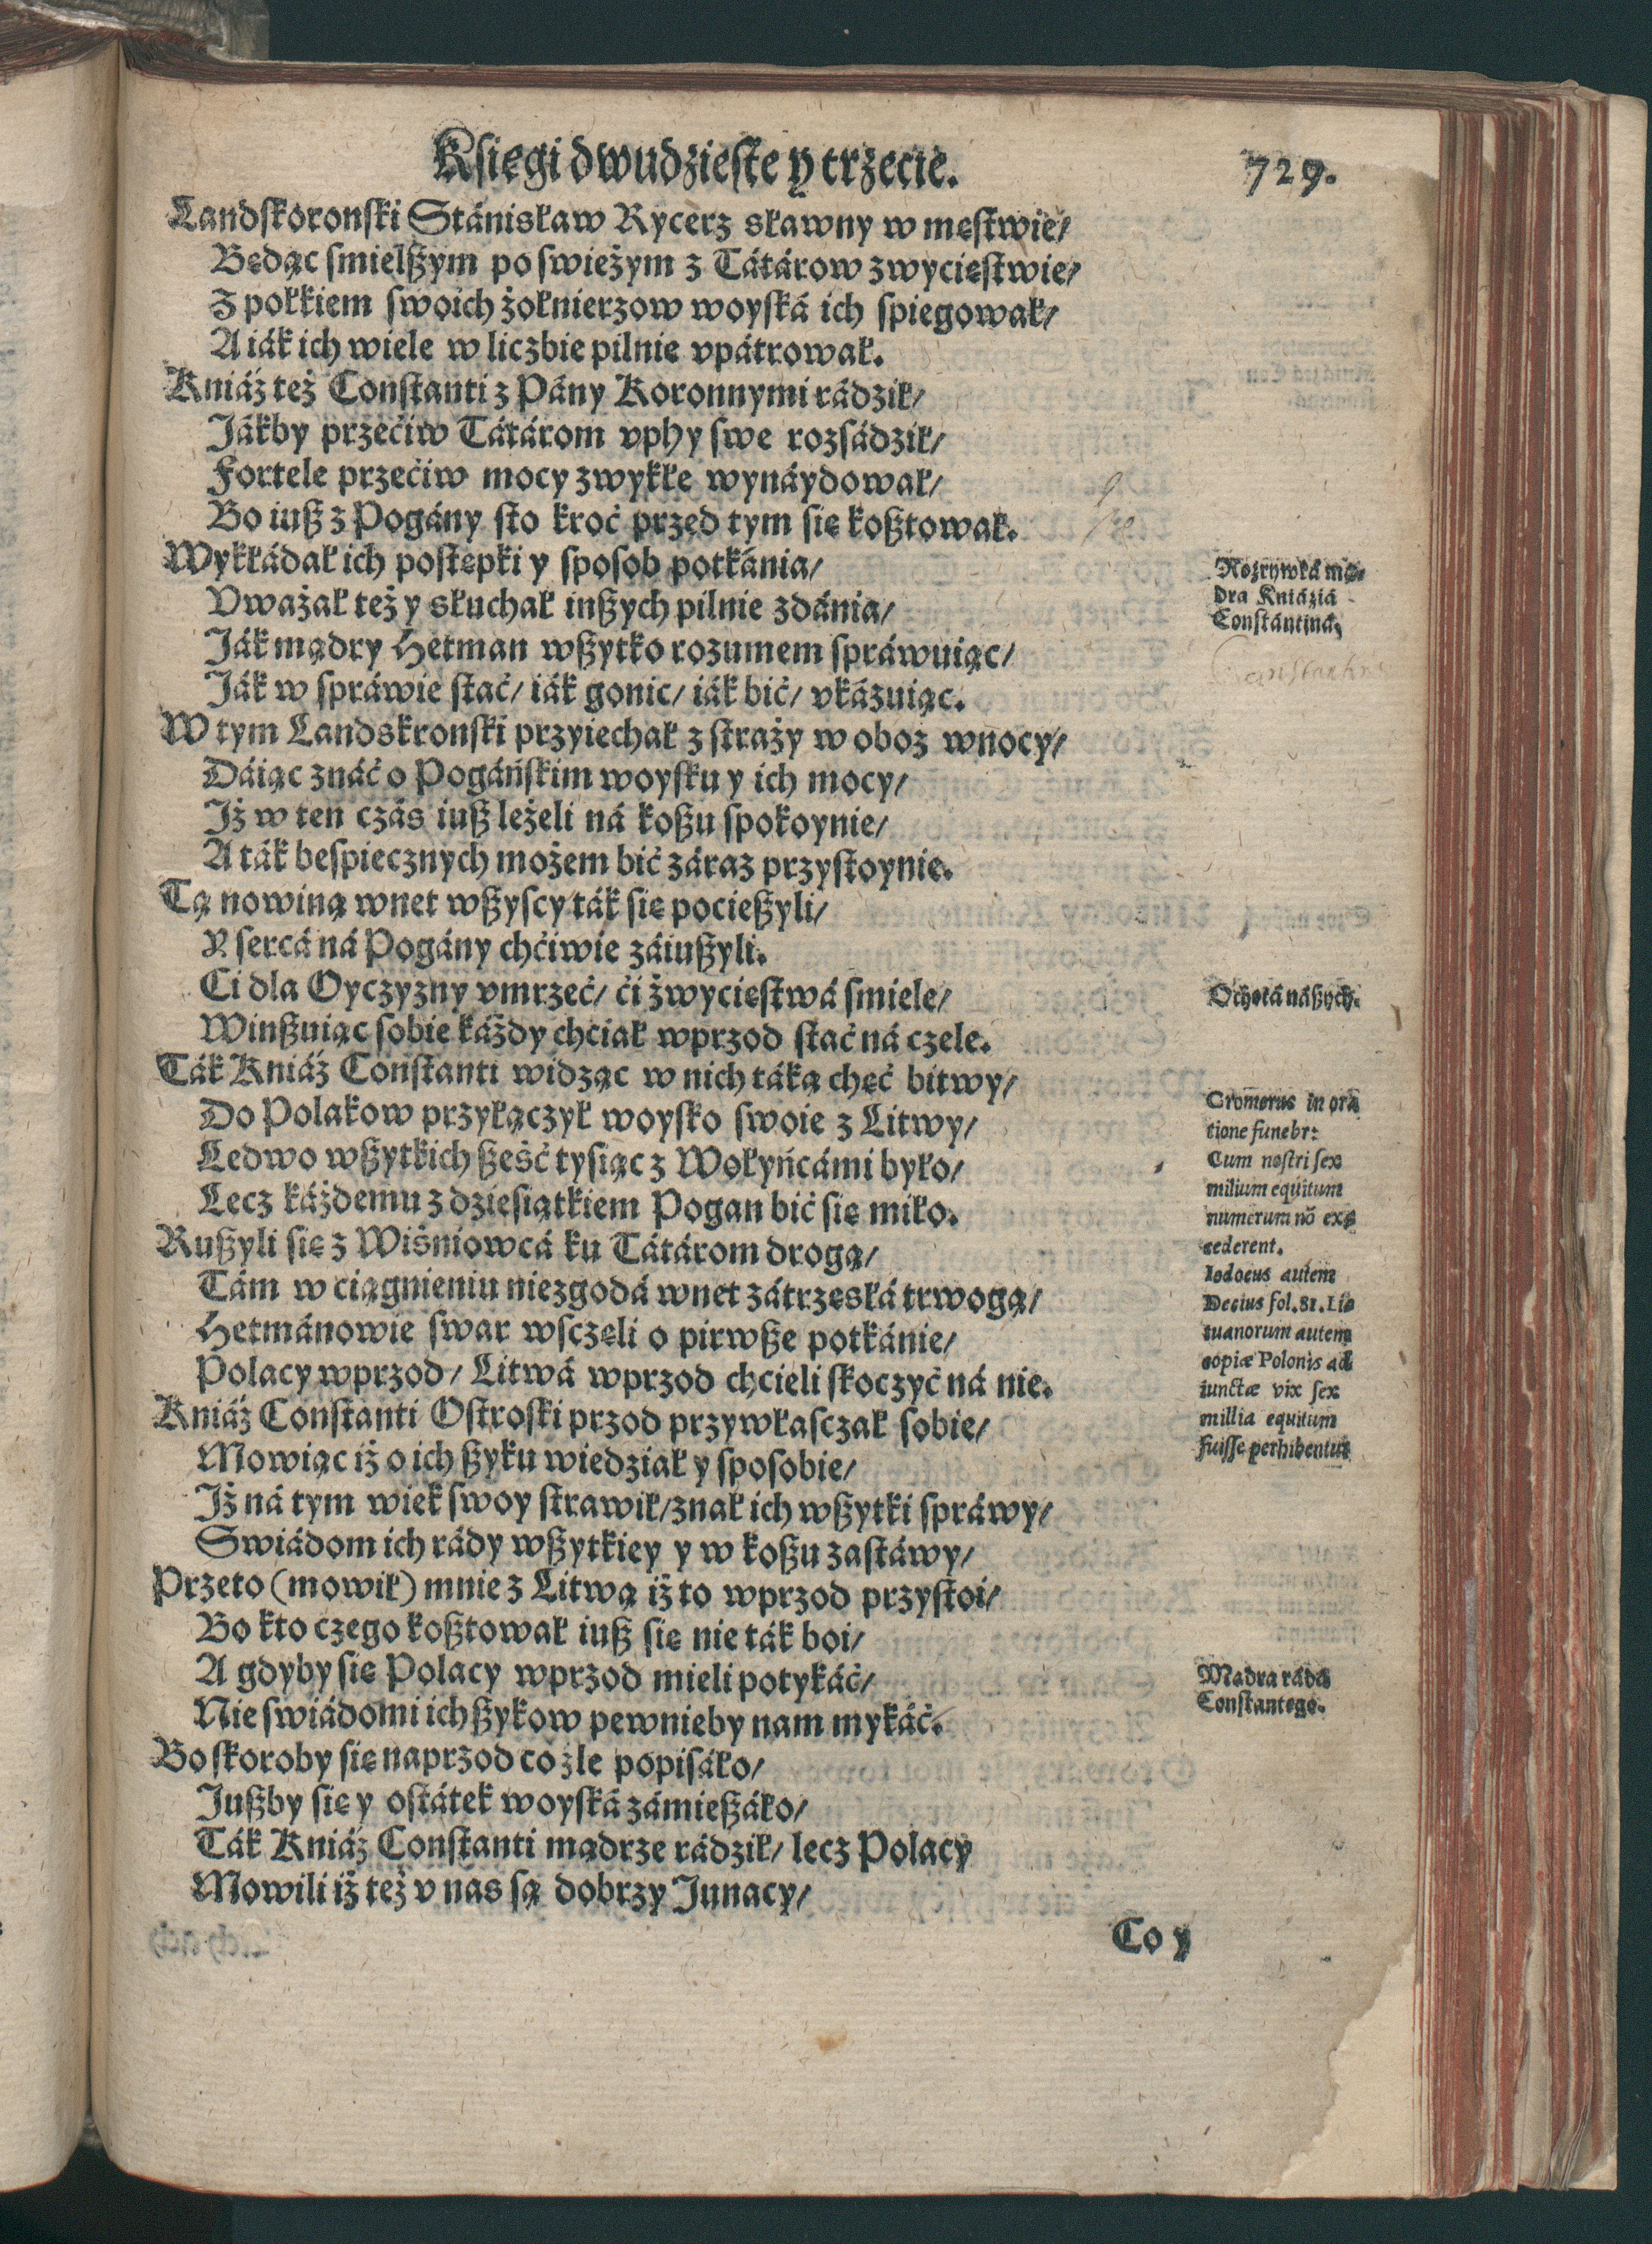 Księgi dwudzieste y trzecie.
729.
Landskoronski Stánisław Rycerz sławny w męstwie/
Będąc smielßym po swieżym z Tátárow zwycięstwie/
Z połkiem swoich żołnierzow woyská ich spiegował/
A iák ich wiele w liczbie pilnie vpátrował.
Kniáź też Constanti z Pány Koronnymi rádził/
Jákby przećiw Tátárom vphy swe rozsádził/
Fortele przećiw mocy zwykłe wynáydował/
Bo iuß z Pogány sto kroć przed tym się koßtował.
Wykłádał ich postępki y sposob potkánia/
Vważał też y słuchał inßych pilnie zdánia/
Ják mądry Hetman wßytko rozumem spráwuiąc/
Ják w spráwie stać/ iák gonic/ iák bić/ vkázuiąc.
W tym Landskronski przyiechał z straży w oboz wnocy/
Dáiąc znáć o Pogáńskim woysku y ich mocy/
Iż w ten czás iuß leżeli ná koßu spokoynie/
A ták bespiecznych możem bić záraz przystoynie.
Tą nowiną wnet wßyscy ták się pocießyli/
Y sercá ná Pogány chćiwie záiußyli.
Ci dla Oyczyzny vmrzeć/ ći zwycięstwá smiele/
Winßuiąc sobie káżdy chciał wprzod stać ná czele.
Ták Kniáź Constanti widząc w nich táką chęć bitwy/
Do Polakow przyłączył woysko swoie z Litwy/
Ledwo wßytkich ßeść tysiąc z Wołyńcámi było/
Lecz káżdemu z dziesiątkiem Pogan bić się miło.
Rußyli się z Wiśniowcá ku Tátárom drogą/
Tám w ciągnieniu niezgodá wnet zátrzęsłá trwogą/
Hetmánowie swar wsczęli o pirwße potkánie/
Polacy wprzod/ Litwá wprzod chcieli skoczyć ná nie.
Kniáź Constanti Ostroski przod przywłasczał sobie/
Mowiąc iż o ich ßyku wiedział y sposobie/
Iż ná tym wiek swoy strawił/ znał ich wßytki spráwy/
Swiádom ich rády wßytkiey y w koßu zastáwy/
Przeto (mowił) mnie z Litwą iż to wprzod przystoi/
Bo kto czego koßtował iuß się nie ták boi/
A gdyby się Polacy wprzod mieli potykáć/
Nie swiádomi ich ßykow pewnieby nam mykáć.
Bo skoroby się naprzod co źle popisáło/
Jußby się y ostátek woyská zámießáło/
Ták Kniáź Constanti mądrze rádził/ lecz Polacy
Mowili iż też v nas są dobrzy Junacy/
Co y
Rozrywká mą-
dra Kniáziá
Constántiná.
Ochotá náßych.
Cromerus in ora
tione funebr:
Cum nostri sex
milium equitum
numerum nō exc
cederent.
Iodocus autem
Decius fol. 81. Lit
tuanorum autem
copiæ Polonis ad
iunctæ vix sex
millia equitum
fuisse perhibentur
Mądra rádá
Constantego.